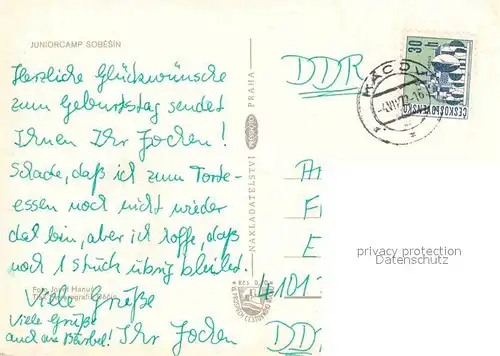 JUNIORCAMP SOBĚŠÍN
Herzliche Glückwünsche
zum Geburtstag sendet
Ihnen Ihr Jochen!
Schade, daß ich zum Torte-
essen noch nicht wieder
dal bin, aber ich hoffe, daß
noch 1 stück übrig bleibt.
Foto Josef Hanuš
Viele Grüße
Viele Grüße
auch an Bärbel!
Ihr Jochen
NAKLADATELSTVÍ
PRAHA
DDR
30 h
ČESKOSLOVENSKO
privacy protection
Datenschutz
4101
DD